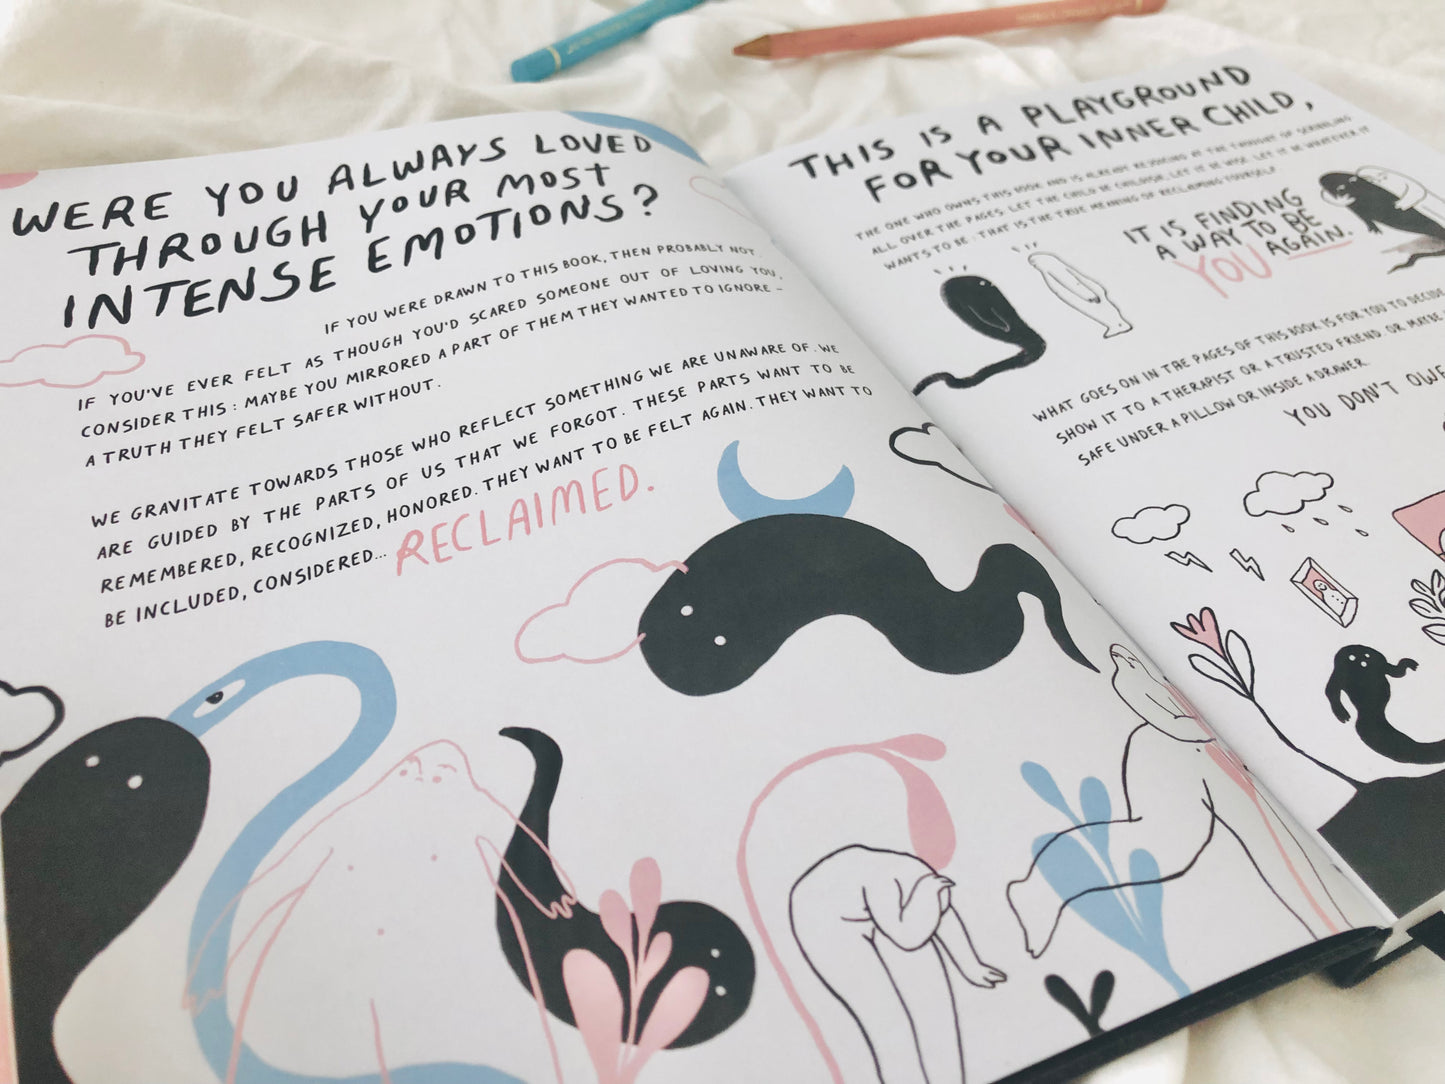 WERE YOU ALWAYS LOVED
THROUGH YOUR MOST
INTENSE EMOTIONS?
IF YOU WERE DRAWN TO THIS BOOK, THEN PROBABLY NOT.
IF YOU'VE EVER FELT AS THOUGH YOU'D SCARED SOMEONE OUT OF LOVING YOU,
CONSIDER THIS: MAYBE YOU MIRRORED A PART OF THEM THEY WANTED TO IGNORE –
A TRUTH THEY FELT SAFER WITHOUT.
WE GRAVITATE TOWARDS THOSE WHO REFLECT SOMETHING WE ARE UNAWARE OF. WE
ARE GUIDED BY THE PARTS OF US THAT WE FORGOT. THESE PARTS WANT TO BE
REMEMBERED, RECOGNIZED, HONORED. THEY WANT TO BE FELT AGAIN. THEY WANT TO
BE INCLUDED, CONSIDERED... RECLAIMED.
THIS IS A PLAYGROUND
FOR YOUR INNER CHILD,
THE ONE WHO OWNS THIS BOOK AND IS ALREADY REJOICING AT THE THOUGHT OF SCRIBBLING
ALL OVER THE PAGES. LET THE CHILD BE CHILDISH. LET IT BE WISE. LET IT BE WHATEVER IT
WANTS TO BE. THAT IS THE TRUE MEANING OF RECLAIMING YOURSELF.
IT IS FINDING
A WAY TO BE
YOU AGAIN.
WHAT GOES ON IN THE PAGES OF THIS BOOK IS FOR YOU TO DECIDE
SHOW IT TO A THERAPIST OR A TRUSTED FRIEND. OR MAYBE
SAFE UNDER A PILLOW OR INSIDE A DRAWER.
YOU DON'T OWE